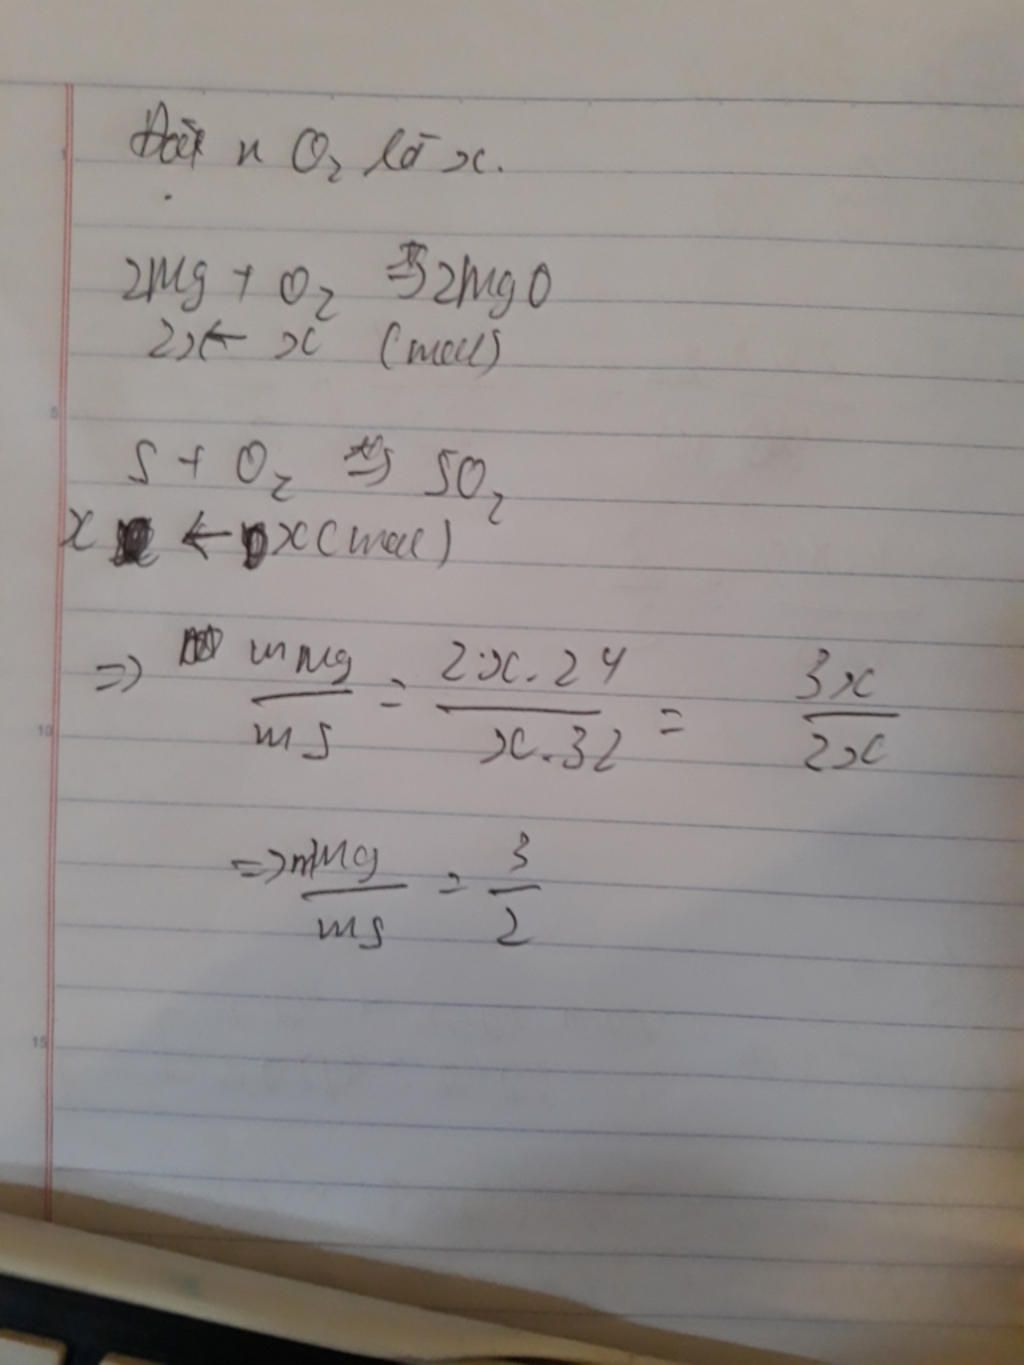 Đặt n O₂ là x.
2Mg + O₂ → 2MgO
2x ← x (mol)
S + O₂ → SO₂
x ← x (mol)
=> mMg/mS = 2x.24/x.32 = 3x/2x
=> mMg/mS = 3/2
5
10
15